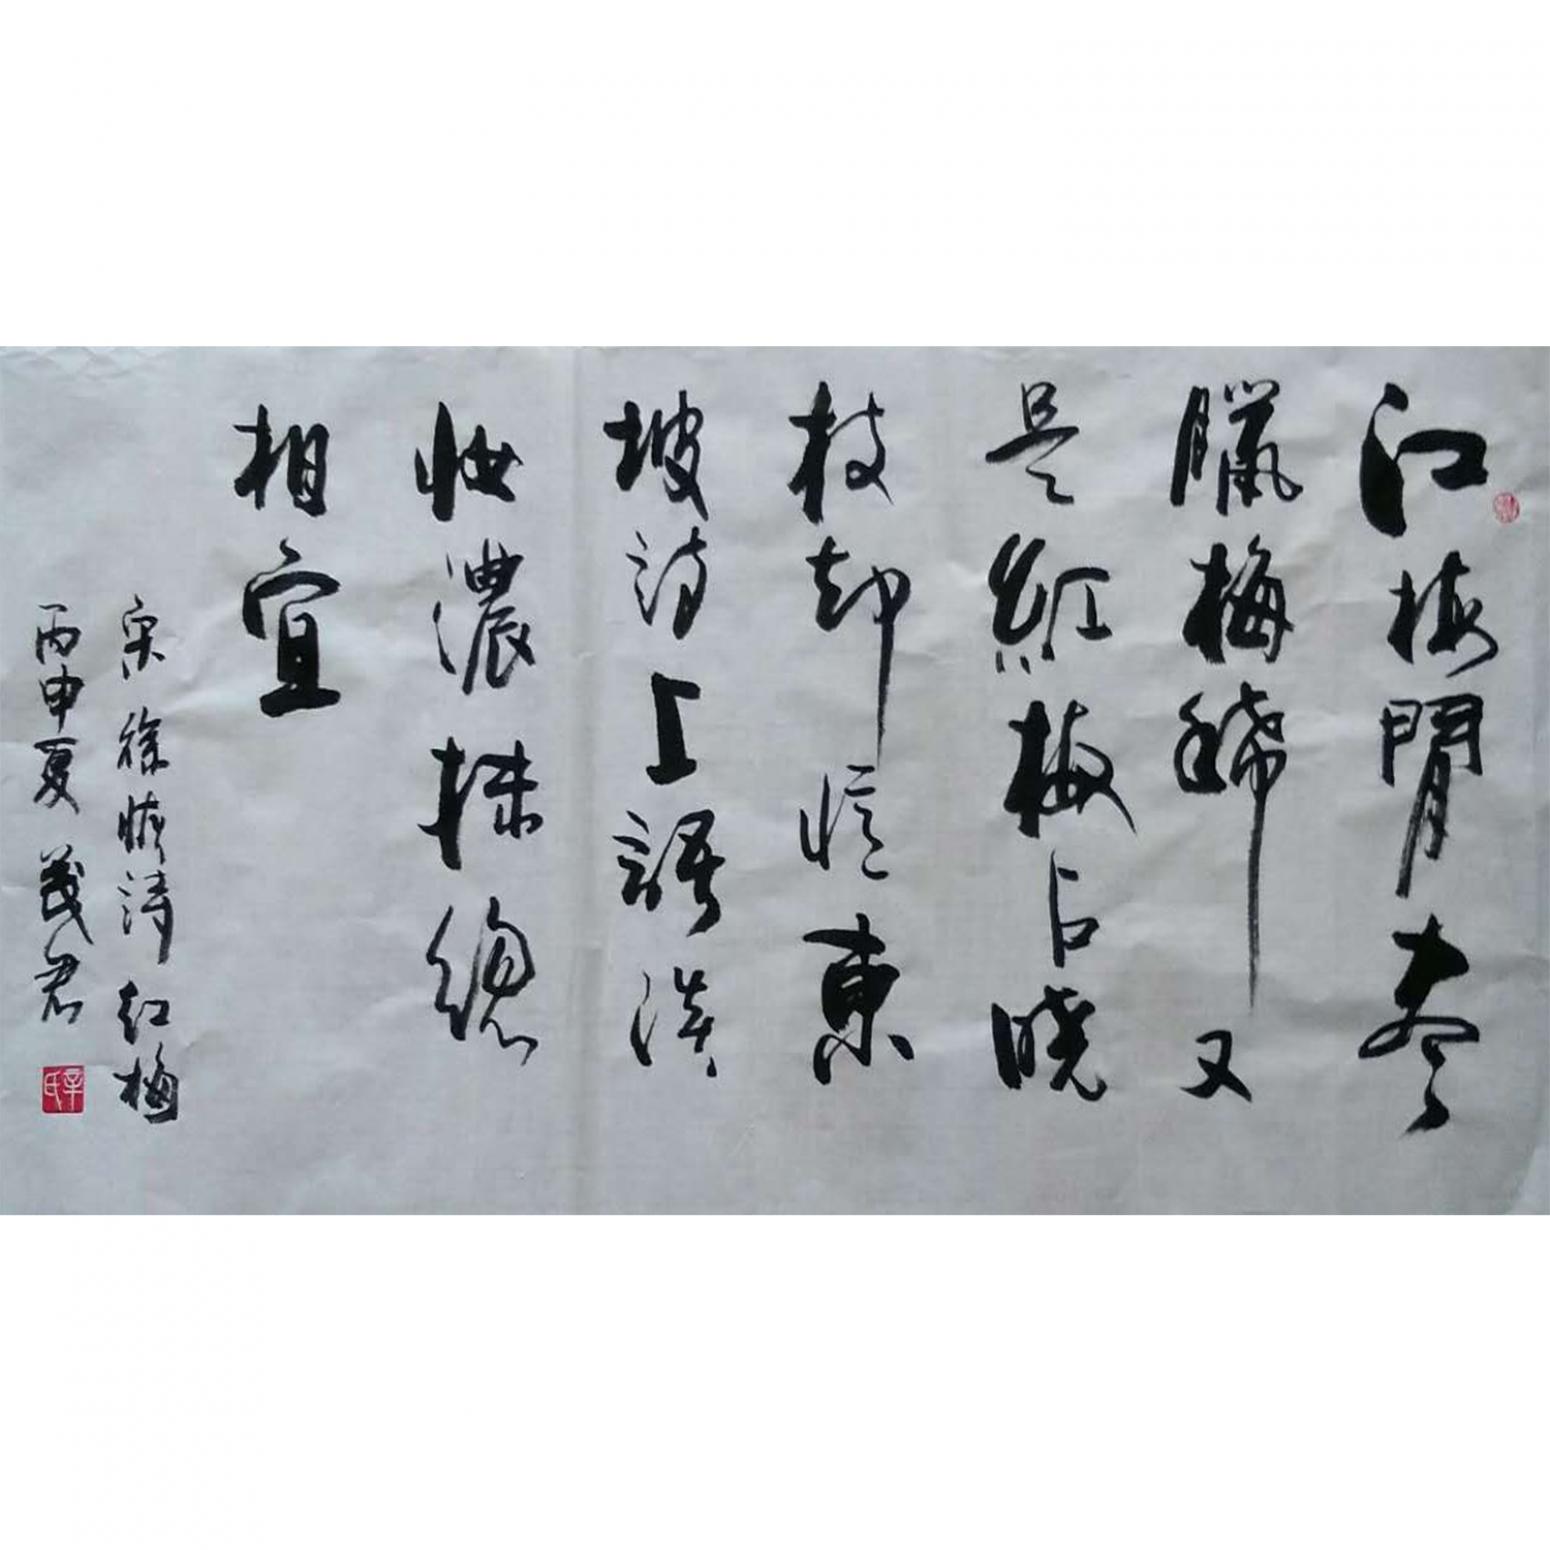 江梅閒盡
臘梅稀又
是紅梅占曉
枝却憶東
坡詩上語淡
妝濃抹總
相宜
宋徐恢詩紅梅
丙申夏茂君
辛氏